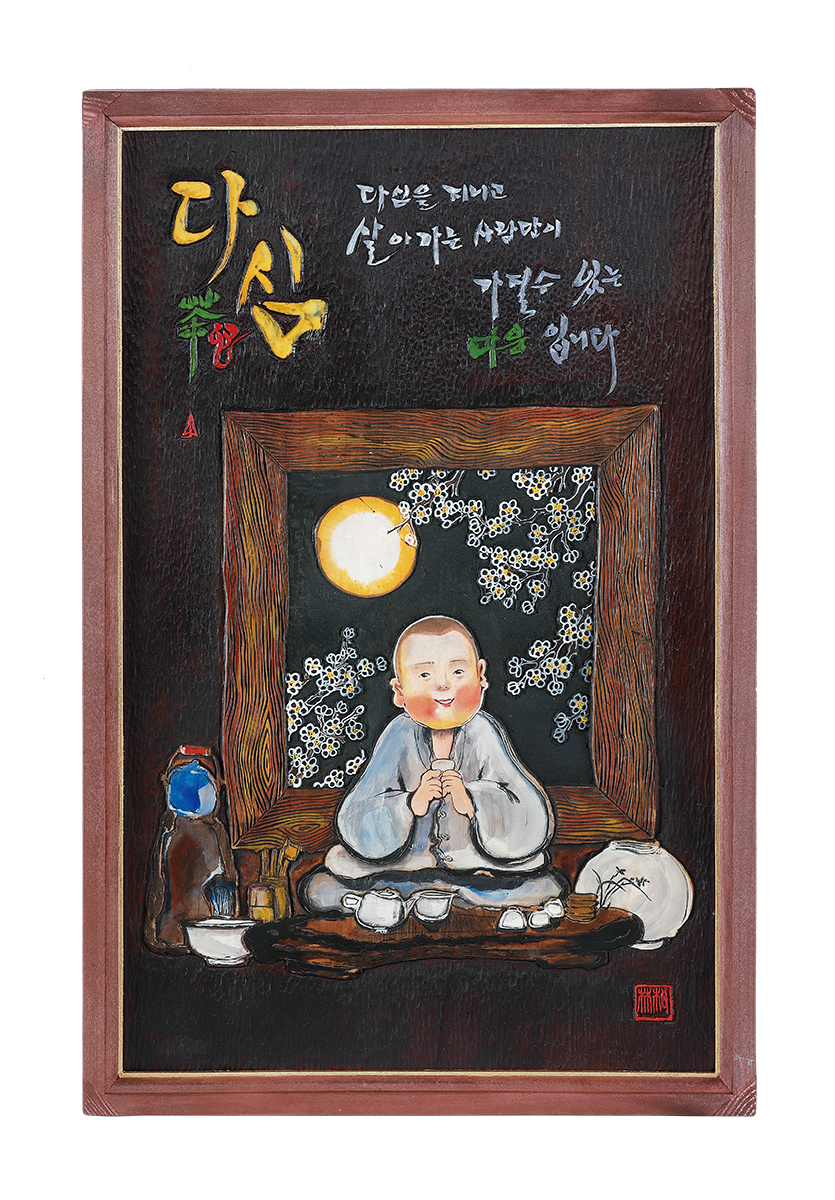 다심
茶心
다심을 지니고
살아가는 사람만이
가질수 있는
마음 입니다